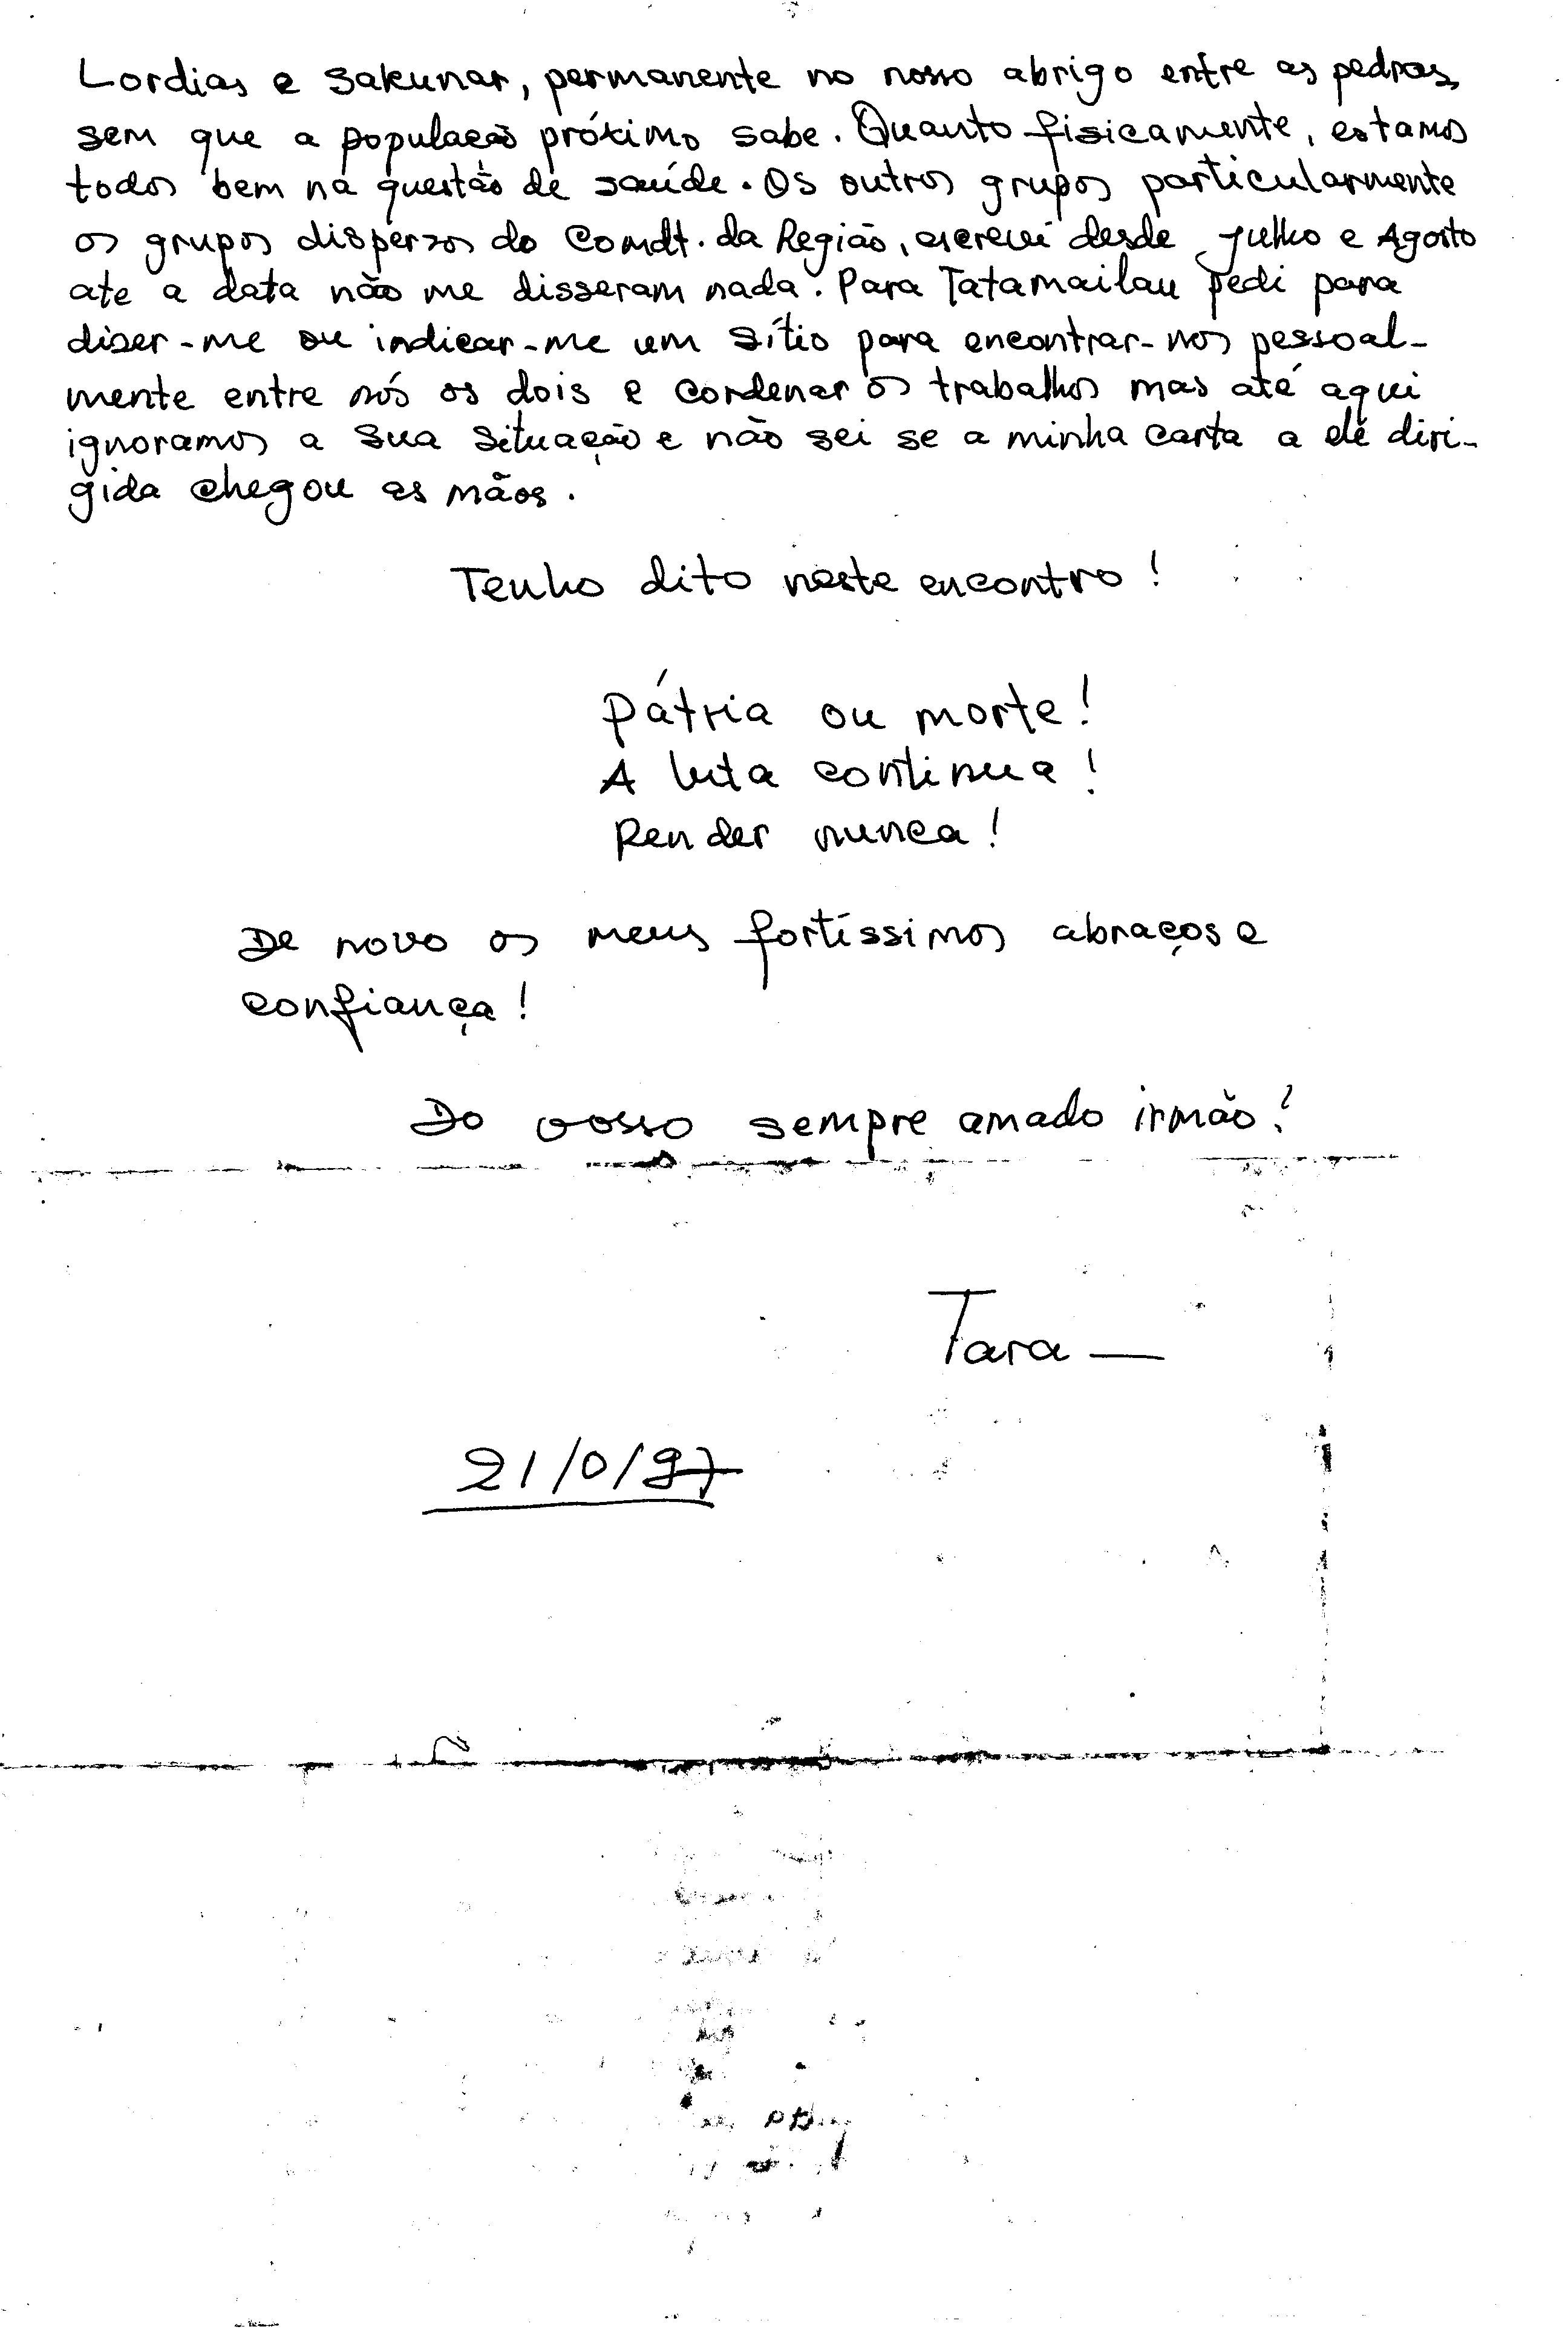 Lordias e Sakunar, permanente no nosso abrigo entre as pedras,
sem que a populacão próximo sabe. Quanto fisicamente, estamos
todos bem na questão de saúde. Os outros grupos particularmente
os grupos disperzos do Comdt. da Região, escrevi desde Julho e Agosto
ate a data não me disseram nada. Para Tatamailau pedi para
dizer-me ou indicar-me um sítio para encontrar-nos pessoal-
mente entre nós os dois e cordenar os trabalhos mas até aqui
ignoramos a sua situação e não sei se a minha carta a ele diri-
gida chegou as mãos.
Tenho dito neste encontro!
Pátria ou morte!
A luta continua!
Render nunca!
De novo os meus fortíssimos abraços e
confiança!
Do vosso sempre amado irmão!
Tara
21/0/97